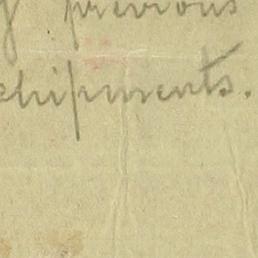 y previous
shipments.